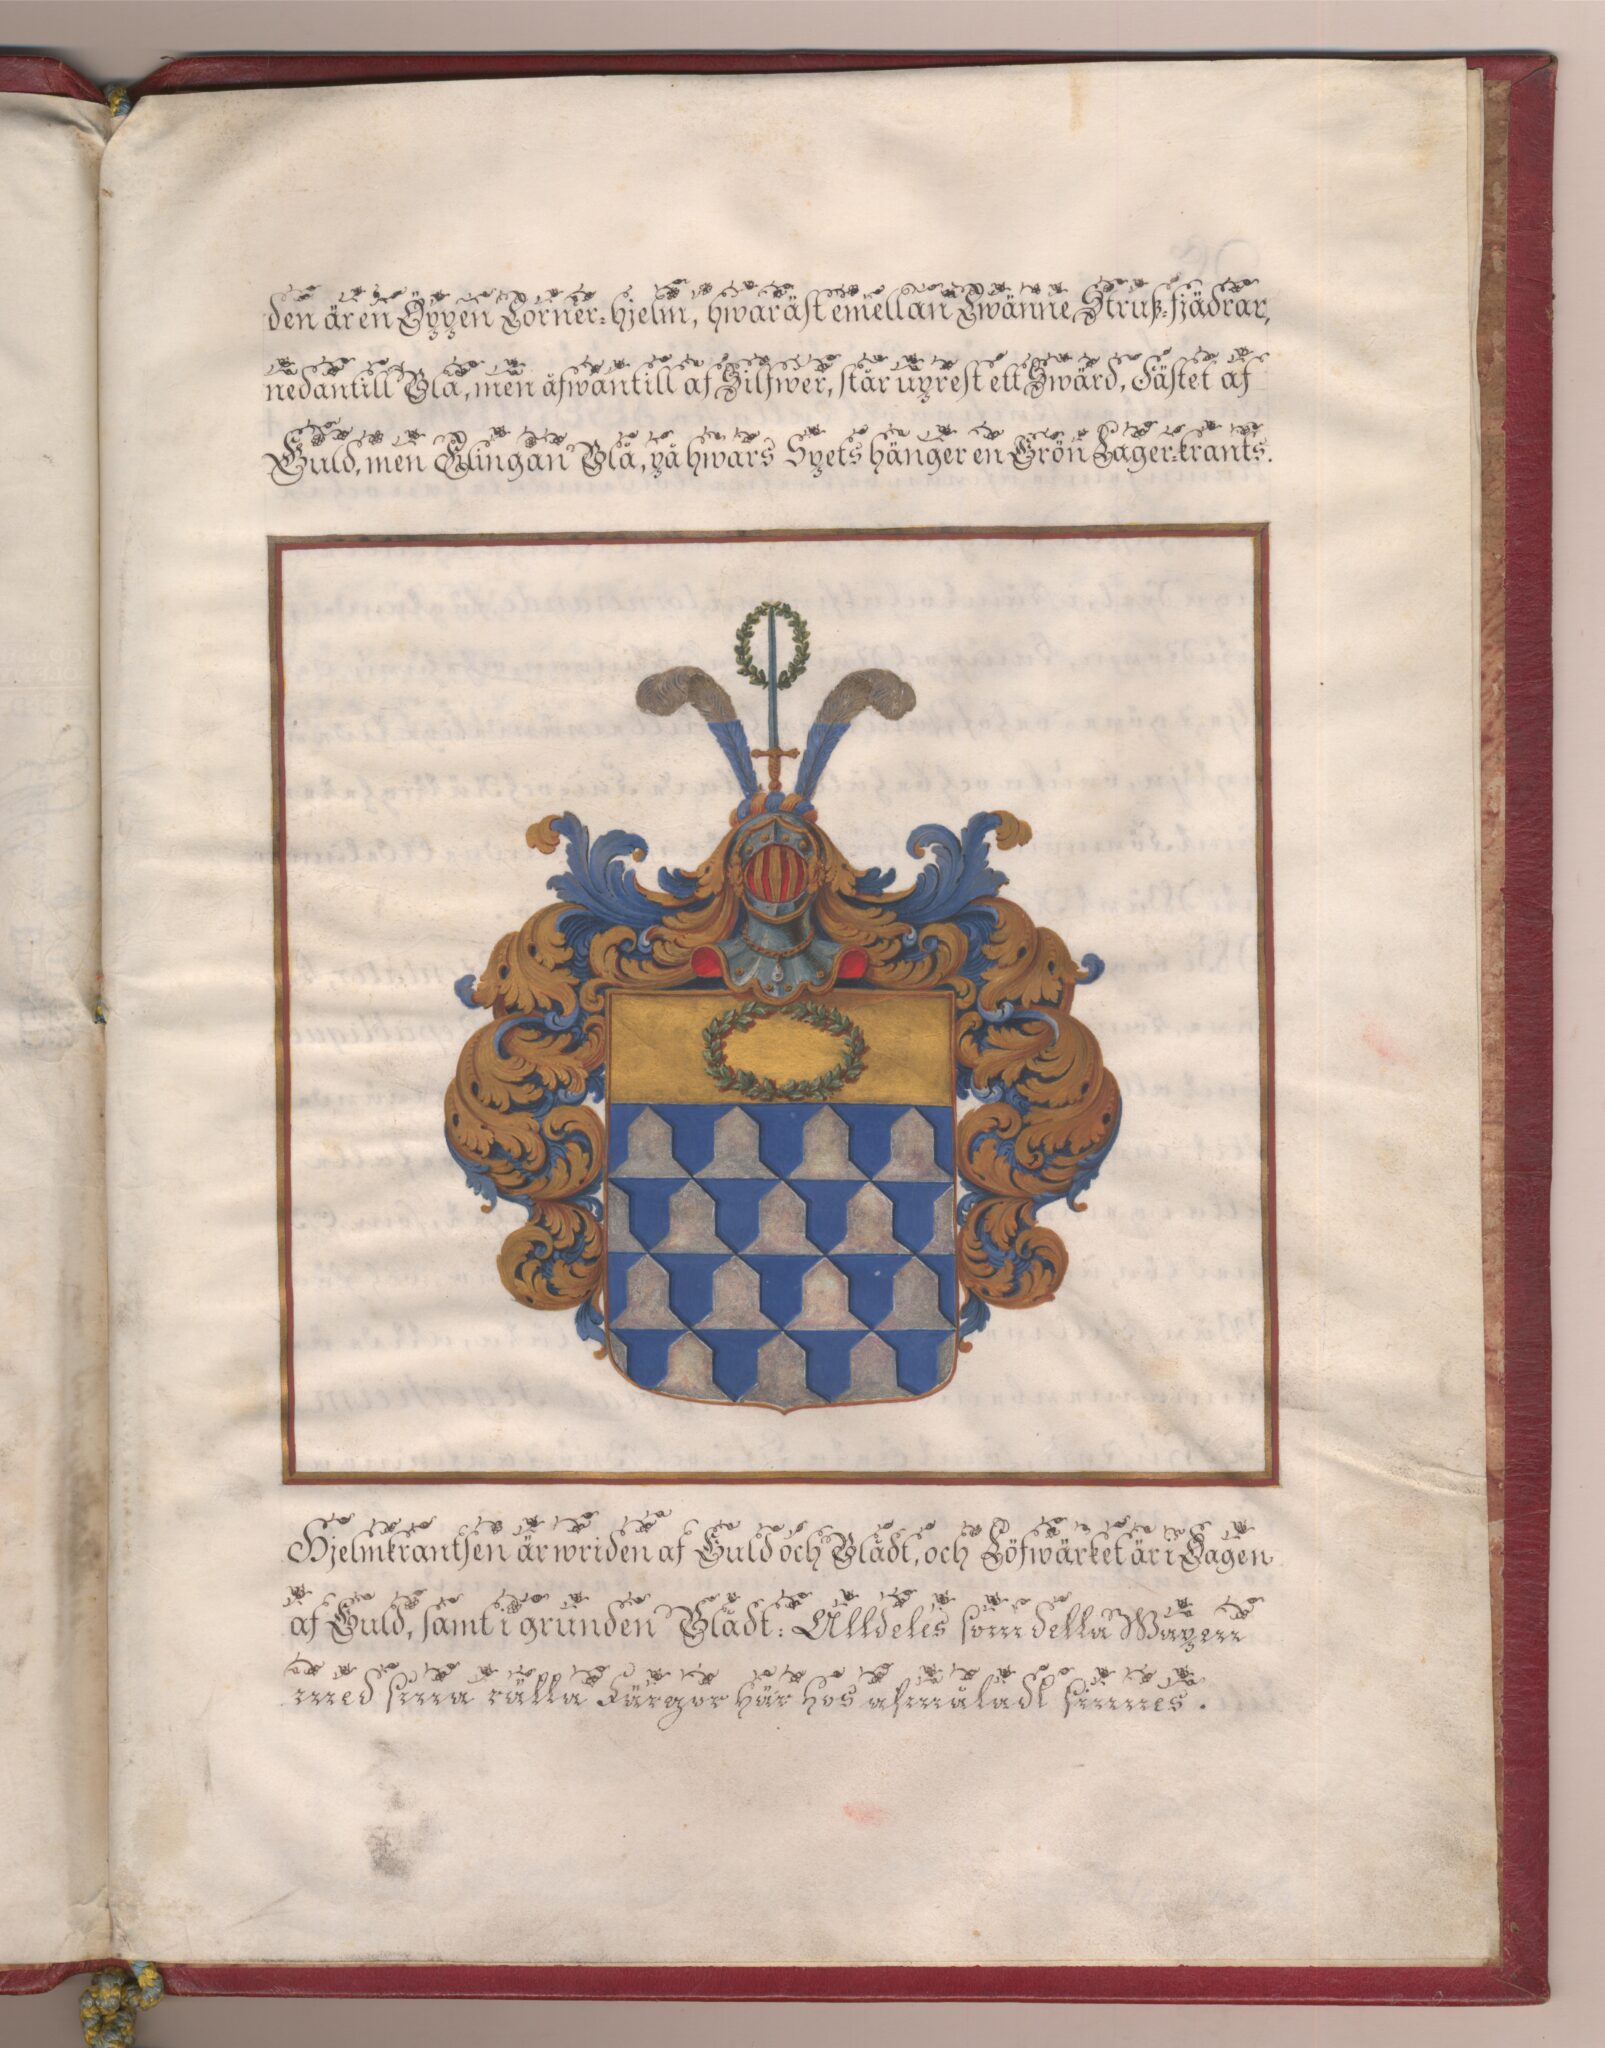 den är en Öppen Torner-hjelm, hwaräst emellan Twänne Struß-fjädrar,
nedantill Blå, men åfwantill af Silfwer, står uprest ett Swärd, Fästet af
Guld, men Klingan Blå, på hwars Spets hänger en Grön Lager-krants.
Hjelmkrantsen är wriden af Guld och Blådt, och Löfwärket är i Dagen
af Guld, samt i grunden Blådt: Alldeles som detta Wapen
med sina rätta Färgor här hos afmåladt finnes.